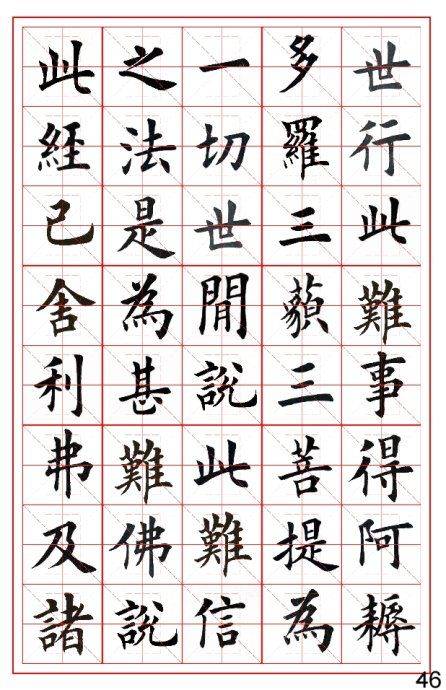 世行此難事得阿耨
多羅三藐三菩提為
一切世間說此難信
之法是為甚難佛說
此經已舍利弗及諸
46